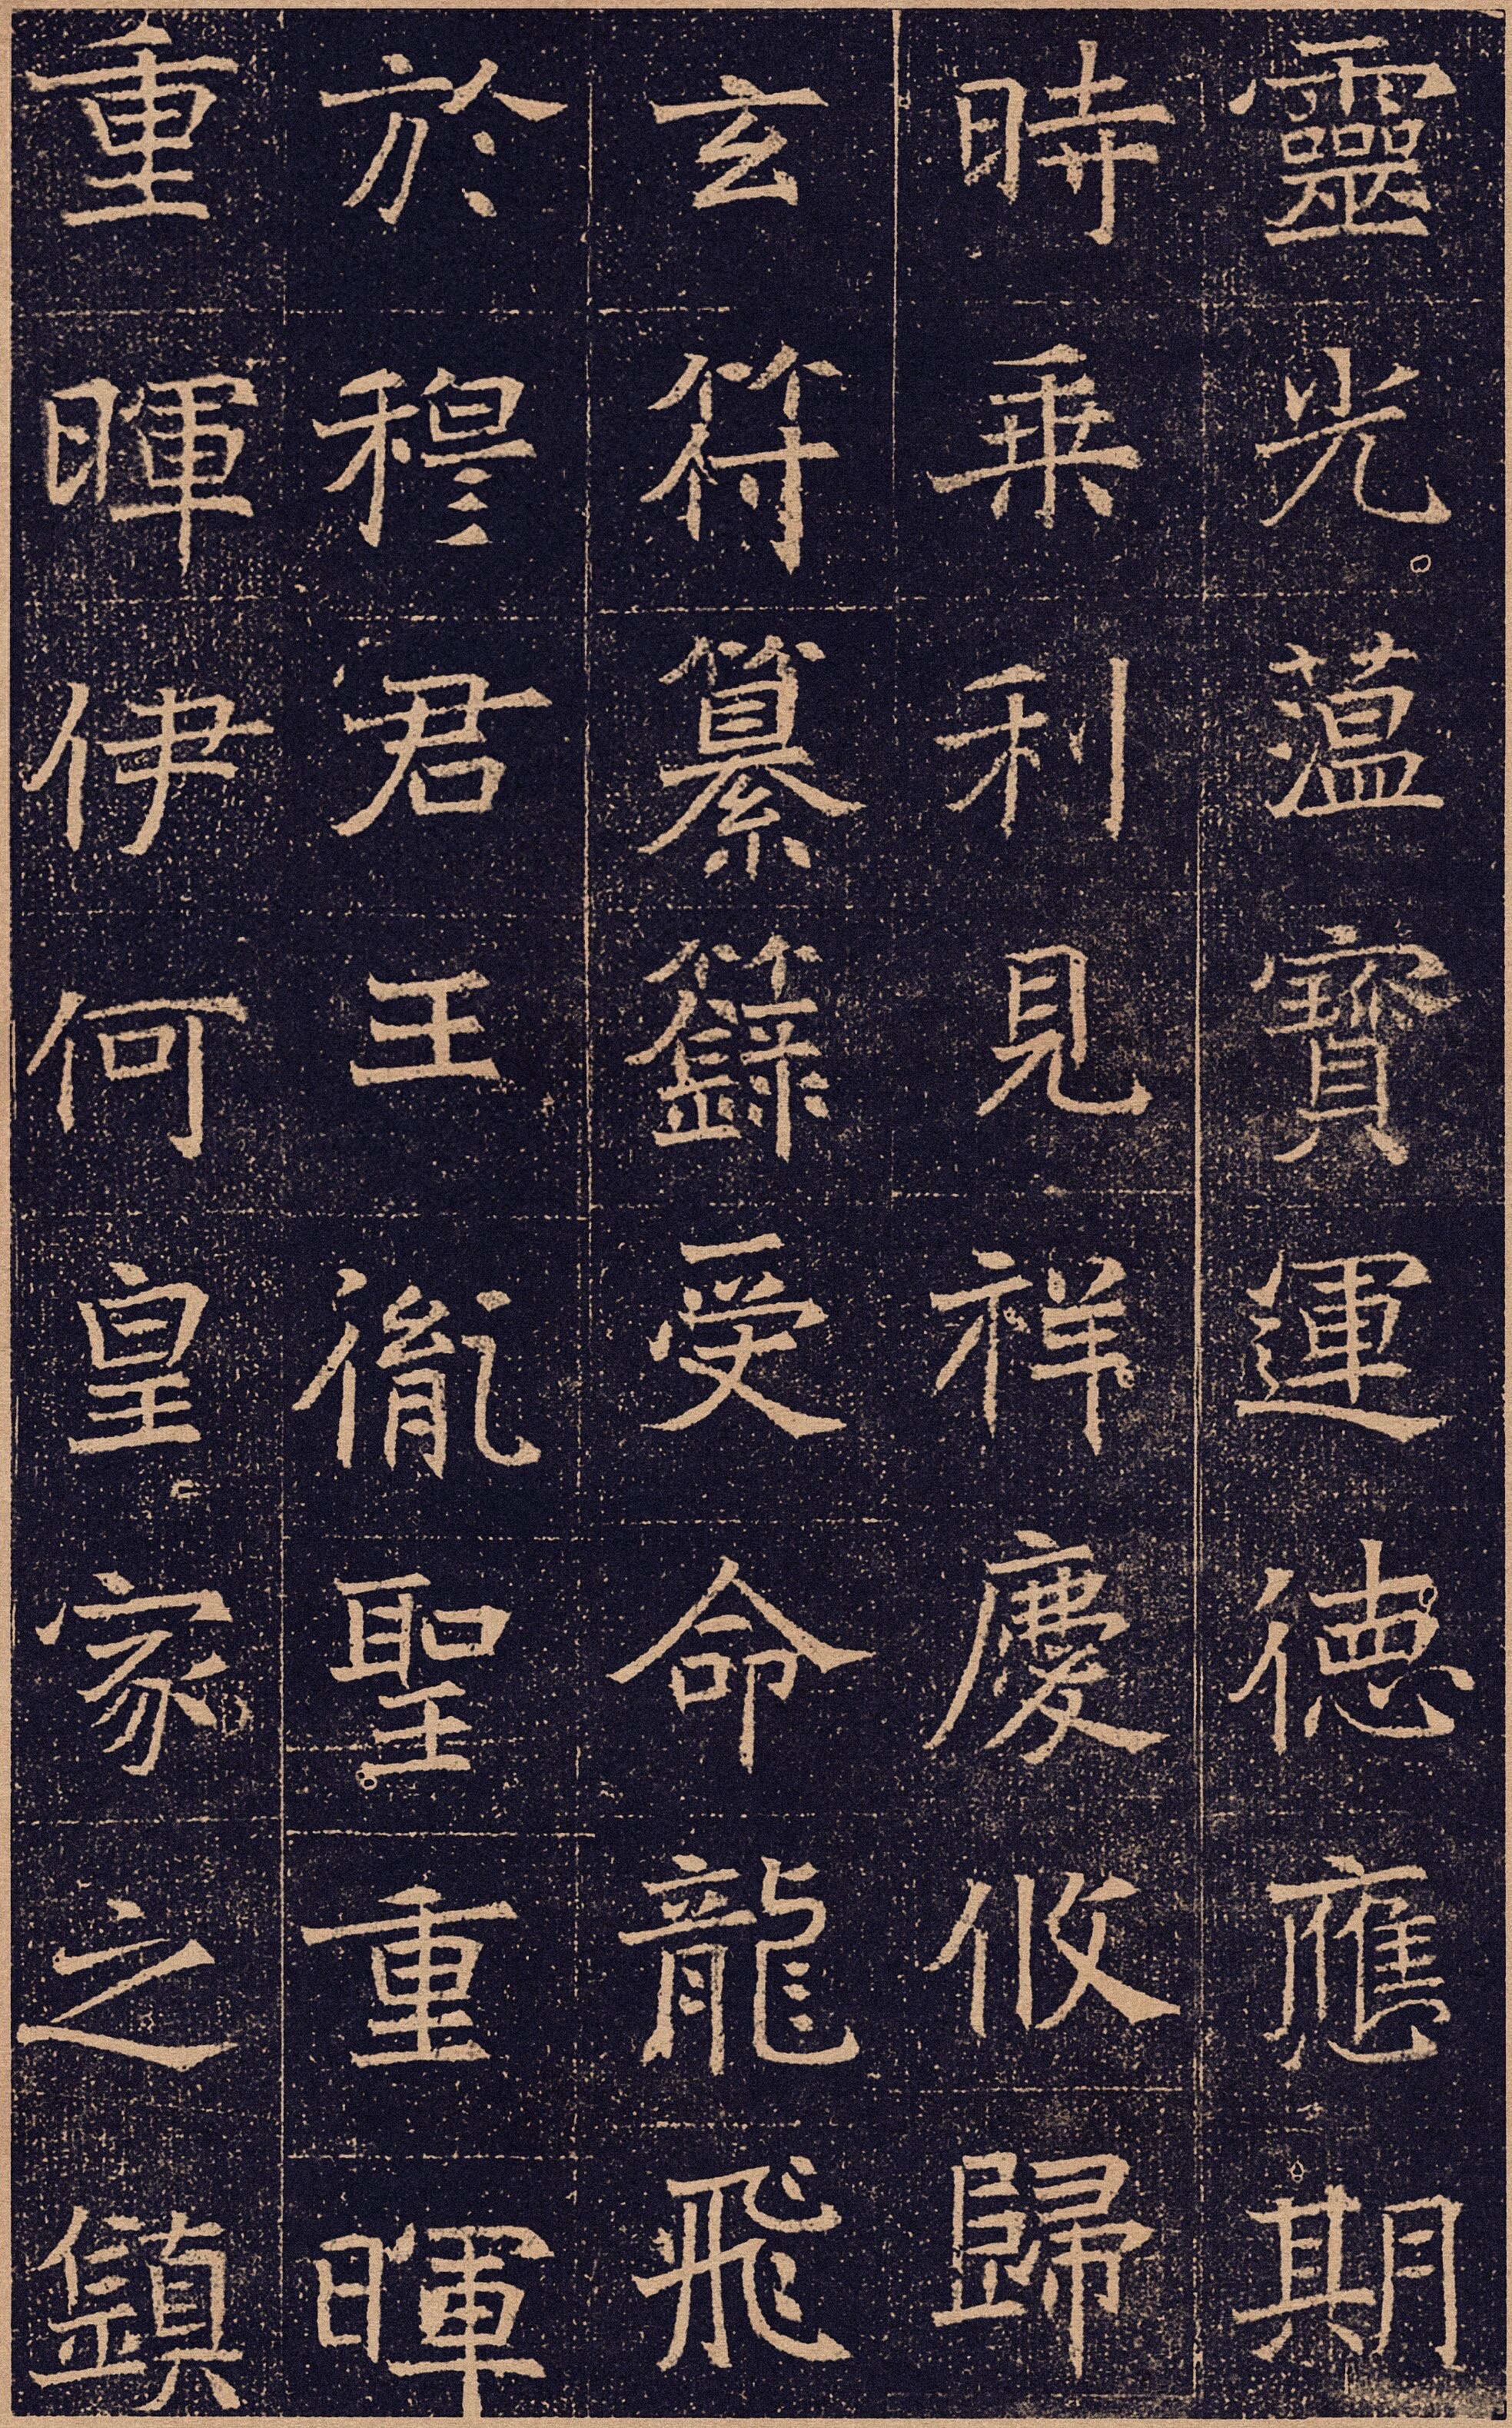 靈光藴寶運德應期
時乗利見祥慶攸歸
玄符纂籙受命龍飛
於穆君王胤聖重暉
重暉伊何皇家之鎮